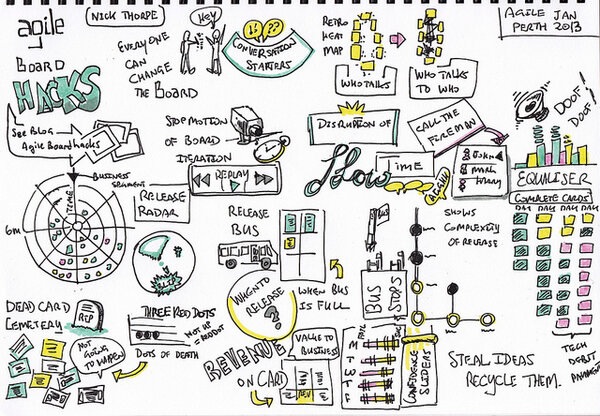 agile
NICK THORPE
HEY
AGILE JAN
PERTH 2013
BOARD
HACKS
EVERYONE
CAN
CHANGE
THE BOARD
CONVERSATION
STARTERS
RETRO
HEAT
MAP
WHO TALKS
WHO TALKS
TO WHO
DOOF!
DOOF!
See BLOG
Agile Boardhacks
STOP MOTION
OF BOARD
ITERATION
REPLAY
DISRUPTION OF
CALL THE
FIREMAN
JOHN
MARK
FLOW
TIME
AGAIN
EQUALISER
COMPLETE CARDS
DAY DAY DAY DAY
BUSINESS
SEGMENT
TEAM
6m
RELEASE
RADAR
RELEASE
BUS
WHEN BUS
IS FULL
BUS
STOPS
SHOWS
COMPLEXITY
OF RELEASE
DEAD CARD
CEMETERY
RIP
NOT
GOING TO
HAPPEN
THREE RED DOTS
DOTS OF DEATH
WHEN TO
RELEASE
?
REVENUE
ON CARD
VALUE TO
BUSINESS
REV
CONFIDENCE
SLIDERS
STEAL IDEAS
RECYCLE THEM.
TECH
DEBT
PAYMENT